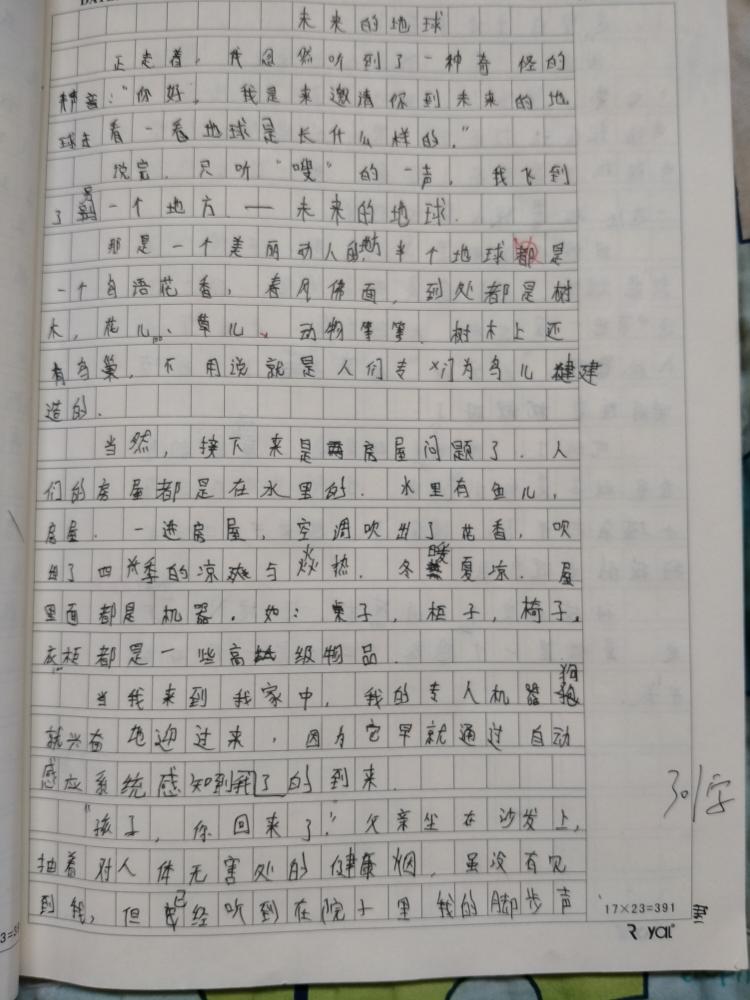 未来的地球
正走着，我忽然听到了一种奇怪的
声音："你好，我是来邀请你到未来的地
球去看一看地球是长什么样的。"
说完，只听"嗖"的一声，我飞到
了另一个地方——未来的地球.
那是一个美丽动人的地方，半个地球都是
一个鸟语花香，春风佛面，到处都是树
木，花儿、草儿、动物等等.树木上还
有鸟巢，不用说就是人们专门为鸟儿建
造的.
当然，接下来是房屋问题了.人
们的房屋都是在水里的.水里有鱼儿，
房屋.一进房屋，空调吹出了花香，吹
出了四季的凉爽与炎热.冬暖夏凉.屋
里面都是机器.如：桌子，柜子，椅子，
衣柜都是一些高级物品.
当我来到我家中，我的专人机器狗
就兴奋地迎过来，因为它早就通过自动
感应系统感知到我了的到来.
"孩子，你回来了."父亲坐在沙发上，
抽着对人体无害处的健康烟，虽没有见
到我，但已经听到在院子里我的脚步声
17×23=391
Royal